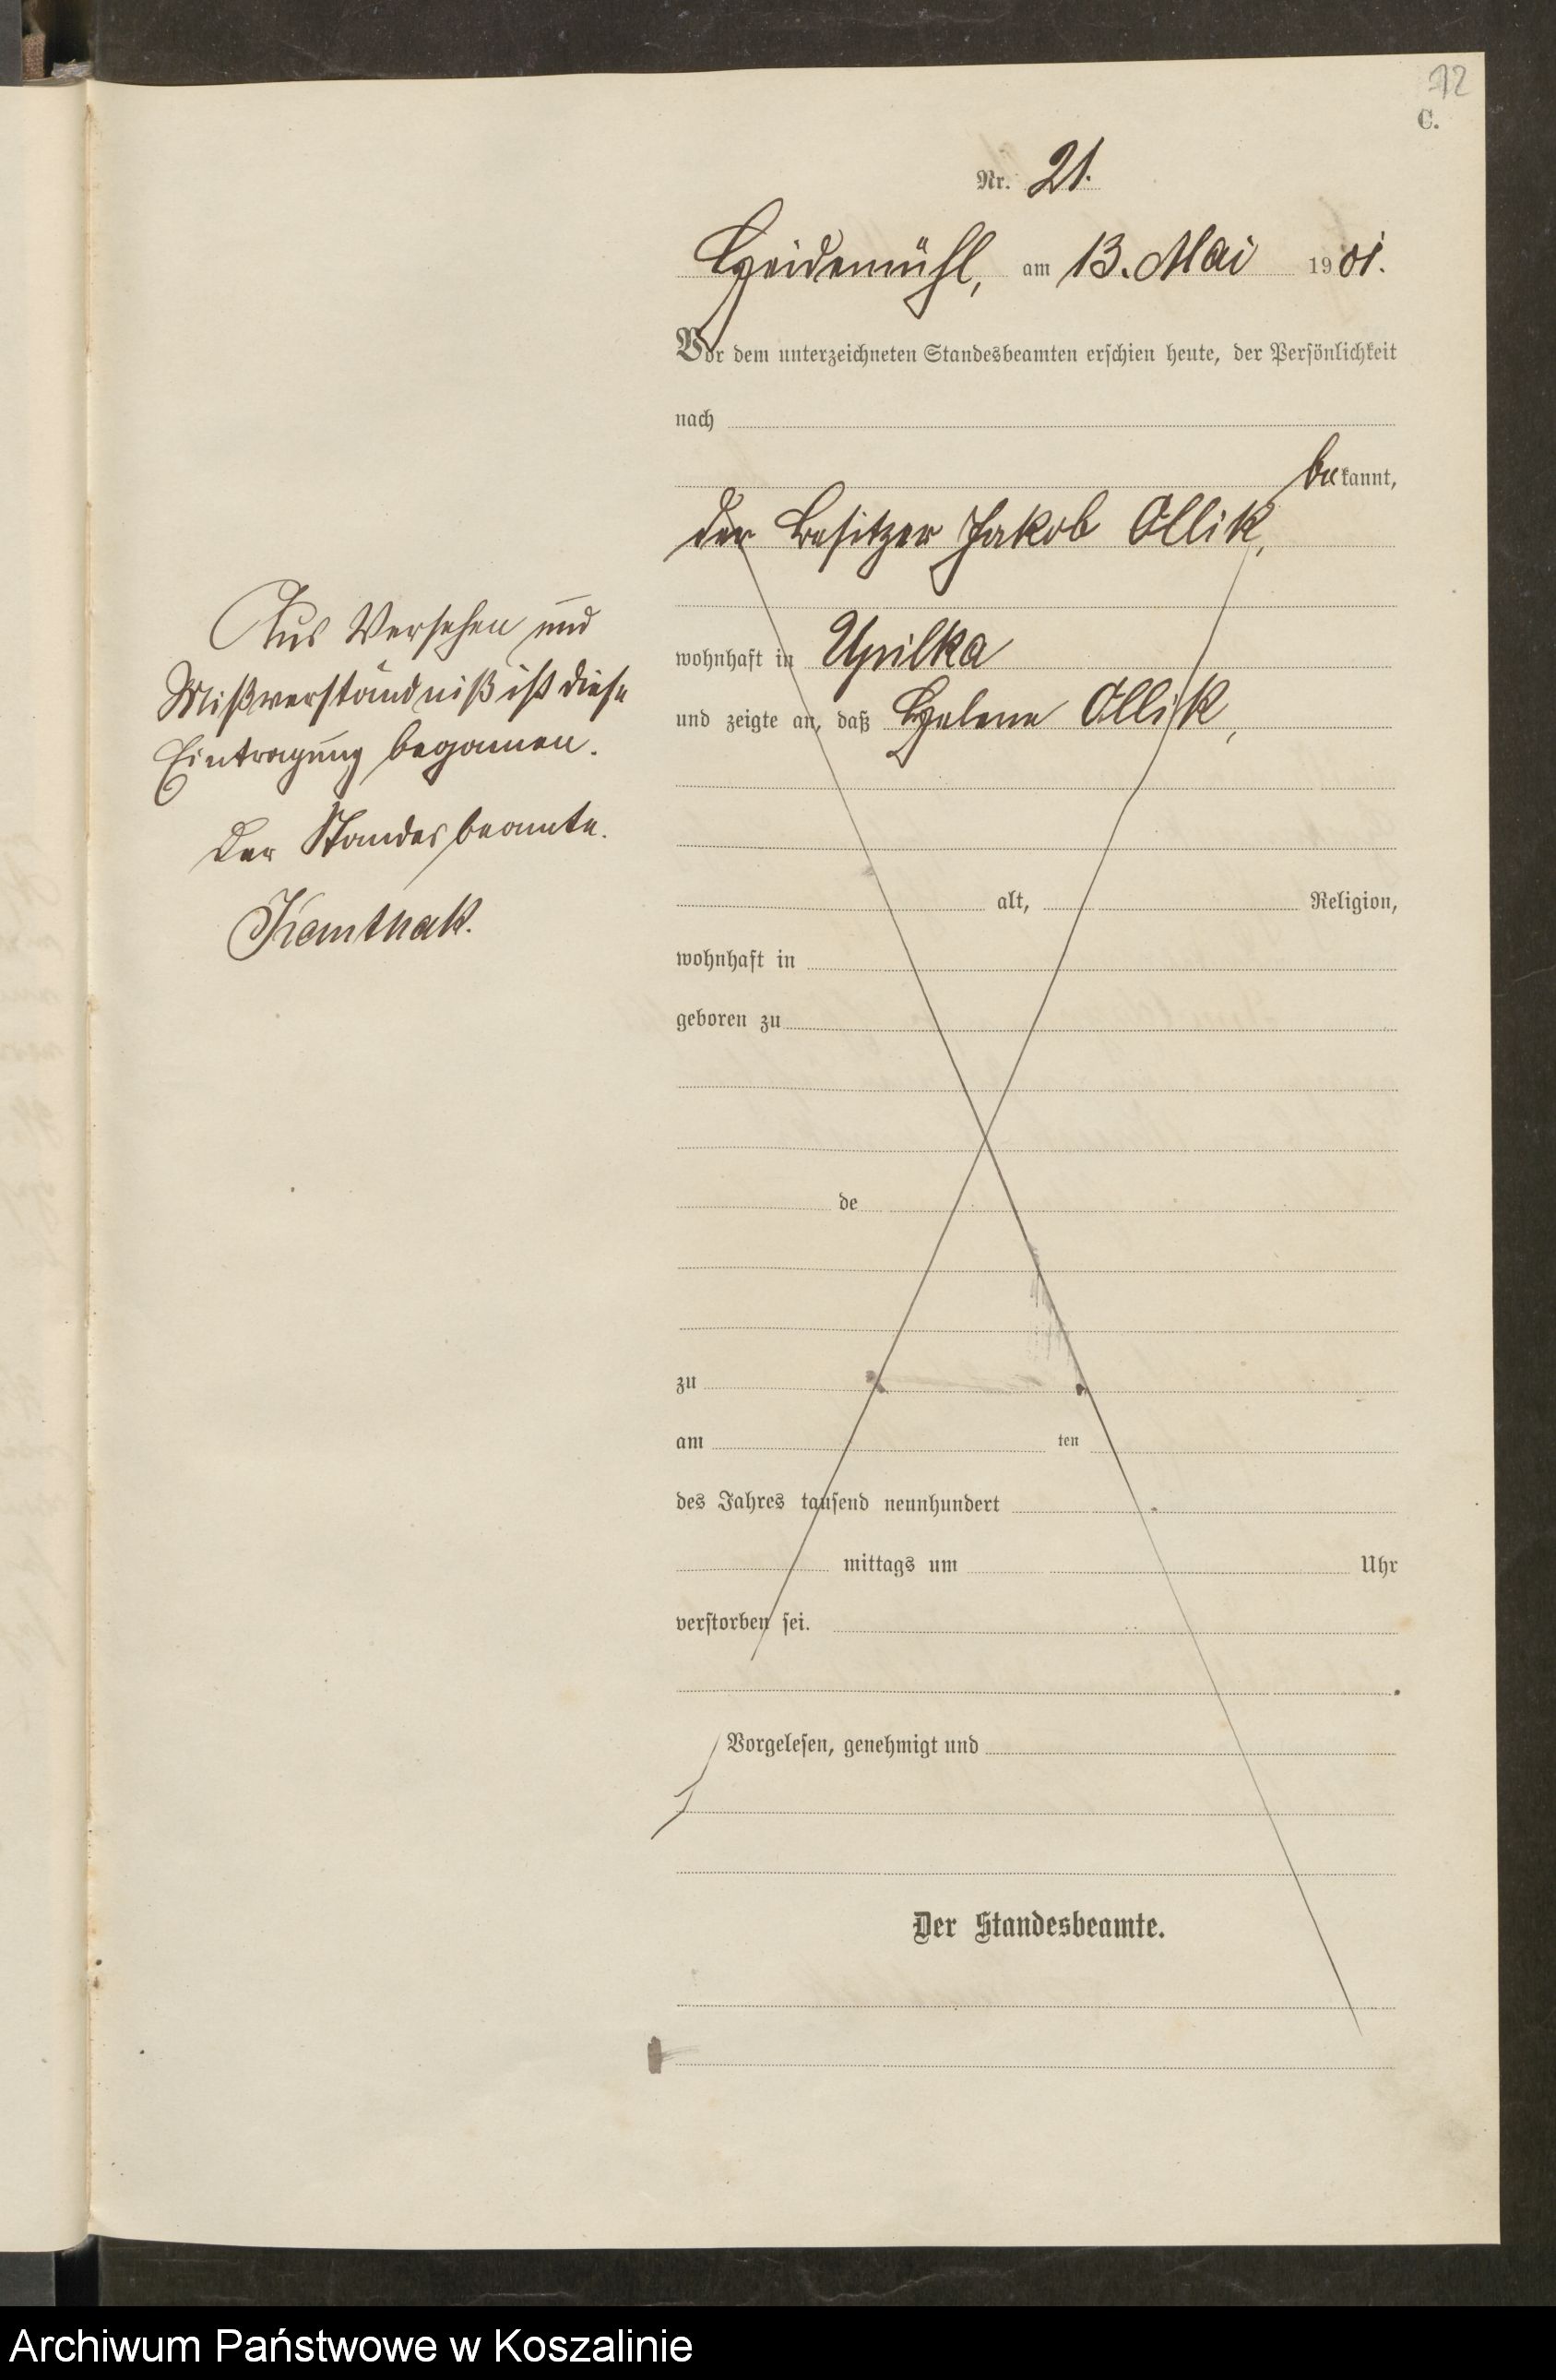 12
C.
Nr. 21.
Heidemühl, am 13. Mai 1901.
Vor dem unterzeichneten Standesbeamten erschien heute, der Persönlichkeit
nach
bekannt,
der Besitzer Jakob Ollik,
wohnhaft in Upilka
und zeigte an, daß Helene Ollik,
alt, Religion,
wohnhaft in
geboren zu
de
zu
am ten
des Jahres tausend neunhundert
mittags um Uhr
verstorben sei.
Vorgelesen, genehmigt und
Der Standesbeamte.
Aus Versehen und
Mißverständniß ist diese
Eintragung begonnen.
Der Standesbeamte.
Archiwum Państwowe w Koszalinie